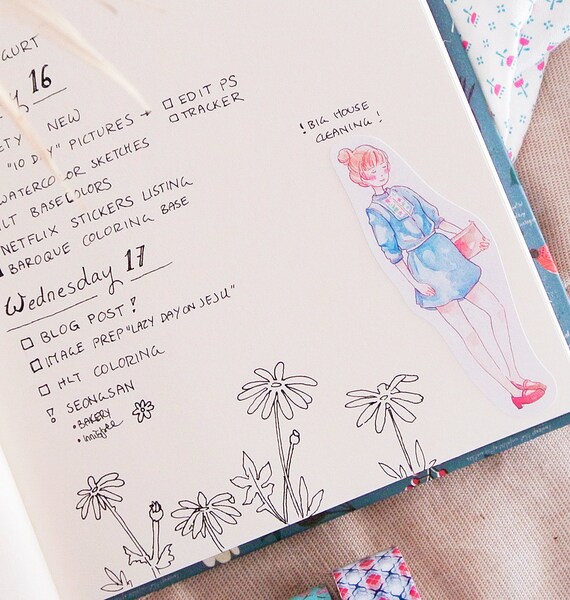 GURT
y 16
ETY NEW
"10 DAY" PICTURES → □ EDIT PS
□ TRACKER
WATERCOLOR SKETCHES
HLT BASE COLORS
NETFLIX STICKERS LISTING
BAROQUE COLORING BASE
Wednesday 17
□ BLOG POST!
□ IMAGE PREP "LAZY DAY ON JEJU"
□ HLT COLORING
! SEONGSAN
• BAKERY
• innisfree
! BIG HOUSE
CLEANING!